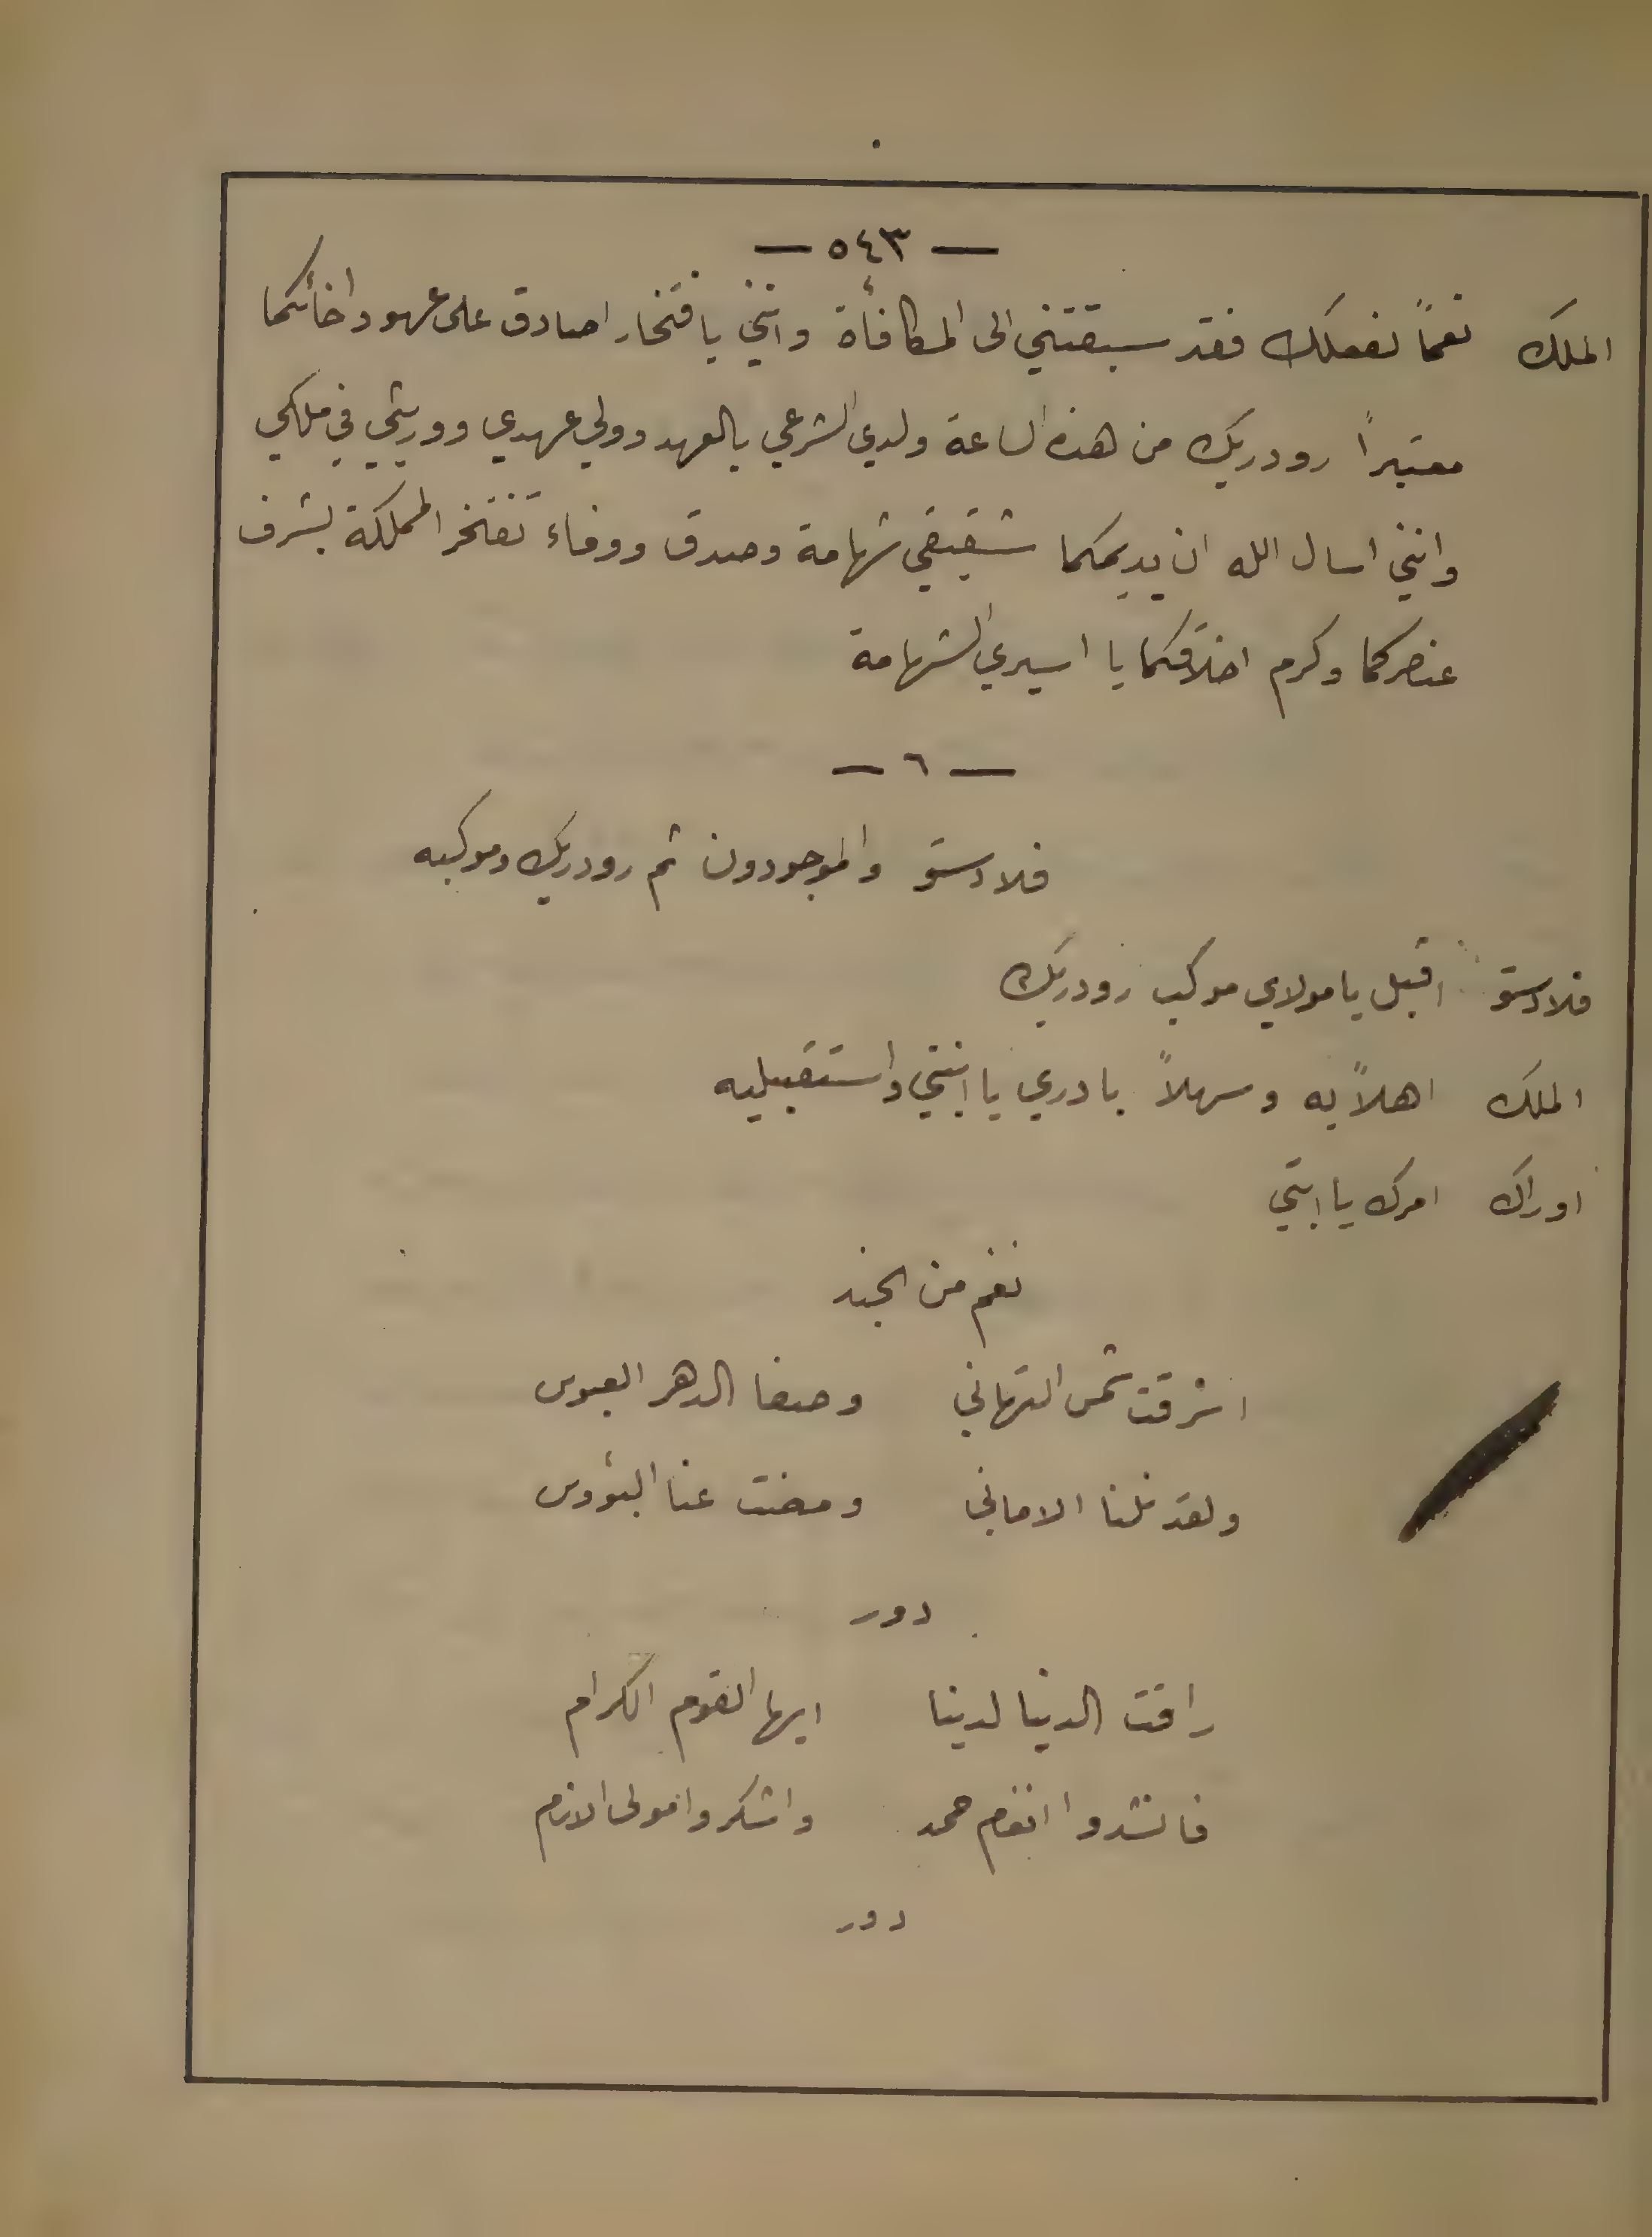 — ٥٤٣ —
الملك نعمًا لفعلك فقد سبقتني الى المكافأة وانني بافتخار اصادق على عهود اخائكما
معتبرًا رودريك من هذه الساعة ولدي الشرعي بالعهد وولي عهدي ووريثي في ملكي
وانني اسال الله ان يديمكما شقيقي شهامة وصدق ووفاء تفتخر المملكة بشرف
عنصركما وكرم اخلاقكما يا اسيري الشهامة
— ٦ —
فلادستو والموجودون ثم رودريك وموكبه
فلادستو اقبل يا مولاي موكب رودريك
الملك اهلاً به وسهلاً بادري يا ابنتي واستقبليه
اوراك امرك يا ابتي
نغم من الجند
اشرقت شمس التهاني وصفا الدهر العبوس
ولقد نلنا الاماني ومضت عنا البؤوس
دور
راقت الدنيا لدينا ايها القوم الكرام
فانشدوا انغام حمد واشكروا مولى الانام
دور